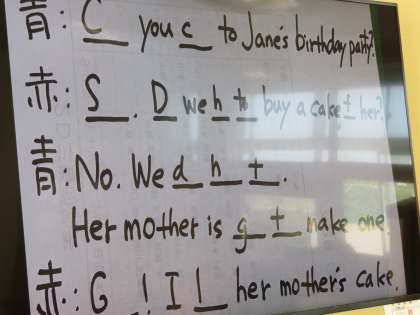 青: C__ you c__ to Jane's birthday party?
赤: S__. D__ we h__ to__ buy a cake f__ her?
青: No. We d__ h__ t__.
Her mother is g__ t__ make one.
赤: G__! I l__ her mother's cake.